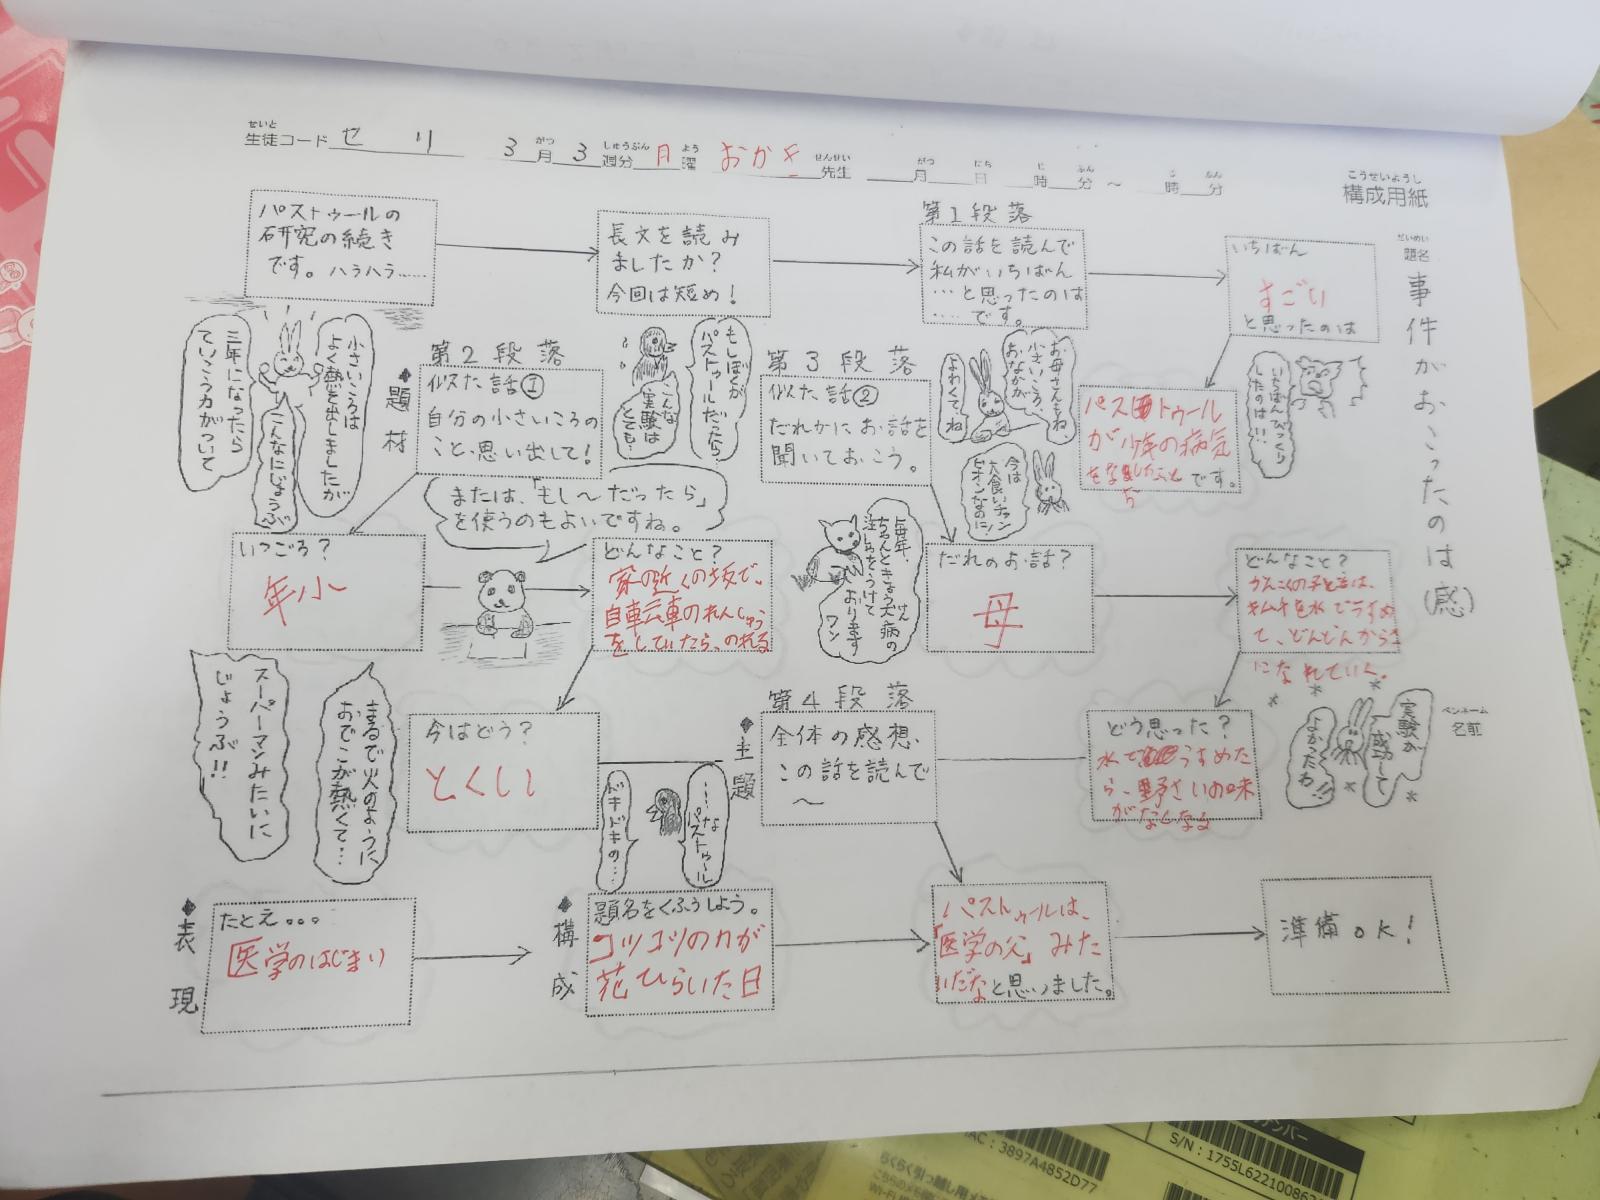 せいと
生徒コード せ り 3月 3週分 月曜 おかき先生 月 日 時 分 ~ 時 分
がつ しゅうぶん よう せんせい がつ にち じ ふん じ ふん
こうせいようし
構成用紙
だいめい
題名
事件がおこったのは(感)
ペンネーム
名前
パストゥールの
研究の続き
です。ハラハラ……
長文を読み
ましたか?
今回は短め!
第1段落
この話を読んで
私がいちばん
…と思ったのは
……です。
いちばん
すごい
と思ったのは
パストゥール
が少年の病気
をなおしたこと です。
いちばんびっくり
したのは!!
◆題材
第2段落
似た話①
自分の小さいころの
こと、思い出して!
または、「もし〜だったら」
を使うのもよいですね。
小さいころは
よく熱を出しましたが
三年になったら
ていこう力がついて
こんなにじょうぶ
もしぼくが
パストゥールだったら
こんな
実験は
とても…
第3段落
似た話②
だれかにお話を
聞いておこう。
お母さんもね
小さいころ、
おなかが
よわくて、ね
今は
大食いチャン
ピオンなのに!
いつごろ?
年小
どんなこと?
家の近くの坂で、
自転車のれんしゅう
をしていたら、のれる
毎年、
ちゃんときょう犬病の
注しゃをうけて
おります
ワン
けん
だれのお話?
母
どんなこと?
かんこくの子どもは、
キムチを水でうすめ
て、どんどんから
になれていく。
今はどう?
とくい
まるで火のように
おでこが熱くて…
スーパーマンみたいに
じょうぶ!!
◆主題
第4段落
全体の感想、
この話を読んで
〜
どう思った?
水でうすめた
ら、野さいの味
がなくなる
実験が
成功して
よかったわ!!
……な
パストゥール
ドキドキの…
◆表現
たとえ。。。
医学のはじまり
◆構成
題名をくふうしよう。
コツコツの力が
花ひらいた日
パストゥールは、
「医学の父」みた
いだなと思いました。
準備OK!
ナンバー
MAC:3897A4852D77
らくらく引っ越し用メ